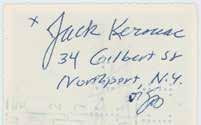 x Jack Kerouac
34 Gilbert St
Northport, N.Y.